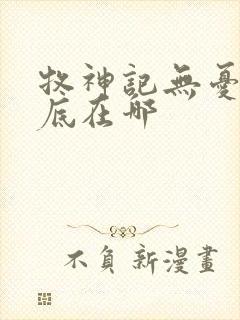 牧神記無憂
底在哪
不負新漫畫